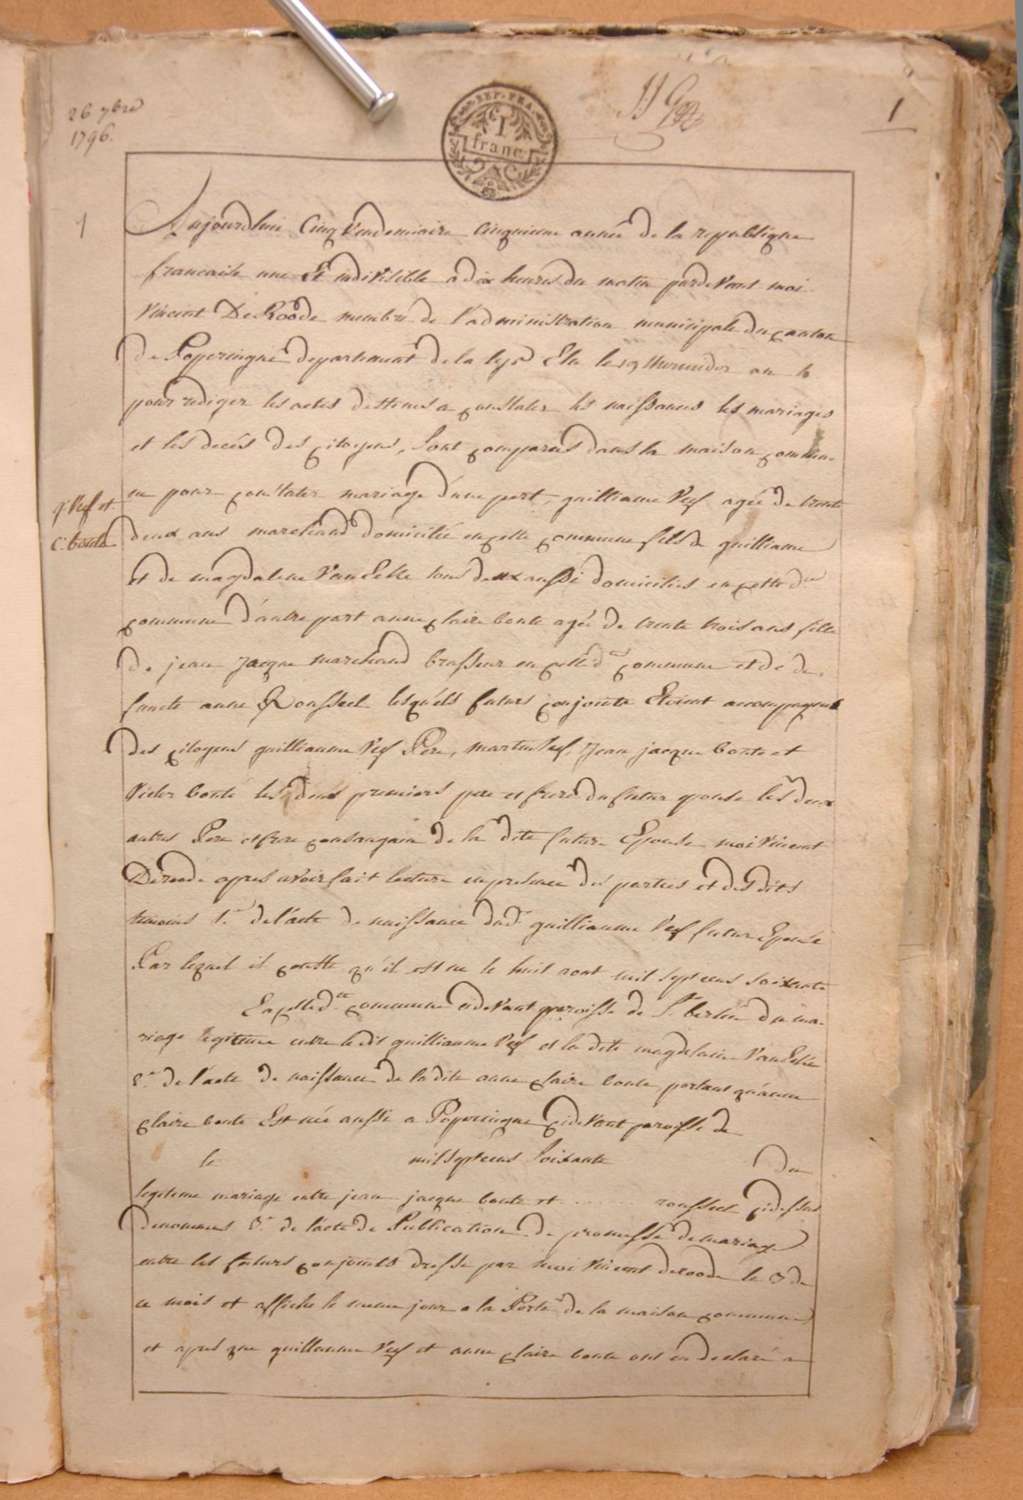 26 7bre
1796.
REP. FRA.
1
franc
1
1
Aujourdhui Cinq Vendemiaire Cinquieme année de la republique
francaise une Et indivisible a dix heures du matin pardevant moi
Vincent De Roode membre de l'administration municipale du canton
de Poperingue departement de la lys Elu le 19 thermidor an 4
pour rediger les actes destines a constater les naissances les mariages
et les decés des citoyens, sont comparus dans la maison commu-
ne pour constater mariage d'une part, guilliaume Vef agée de trente
g: Vef et
c: bonte
deux ans marchand domicilié en cette commune fils de guilliaume
et de magdalene VandEele tous deux aussi domiciliés en cette dte
commune d'autre part anne claire bonte agée de trente trois ans fille
de jean Jacque marchand brasseur en cette dte commune et de de-
functe anne Roussel lesquels futurs conjoints Etoient accompagnés
des citoyens guilliaume Vef Pere, martin Vef, Jean jacque bonte et
Victor bonté les deux premiers pere et frere du futur epouse les deux
autres Pere et frere consanguin de la dite future Epouse moi Vincent
Deroode apres avoir fait lecture en presence des parties et des dits
temoins 1.o de l'acte de naissance dudt guilliaume Vef futur Epouse
Par lequel il conste qu'il est né le huit aout mil septcens soixante
En cette dte commune cidevant paroisse de St bertin du ma-
riage legitime entre le dit guilliaume Vef et la dite magdelaine VandEele
2.o de l'acte de naissance de la dite anne claire bonte portant qu'anne
claire bonte Est née aussi a Poperingue cidevant paroisse de
le milseptcens soixante du
legitime mariage entre jean jacque bonte et roussel cidessus
denommés 3.o de l'acte de Publication de promesse de mariage
entre les futurs conjoints dressé par moi Vincent deroode le 3 de
ce mois et affiché le meme jour a la Porte de la maison commune
et apres que guillaume Vef et anne claire bonte ont en declaré a